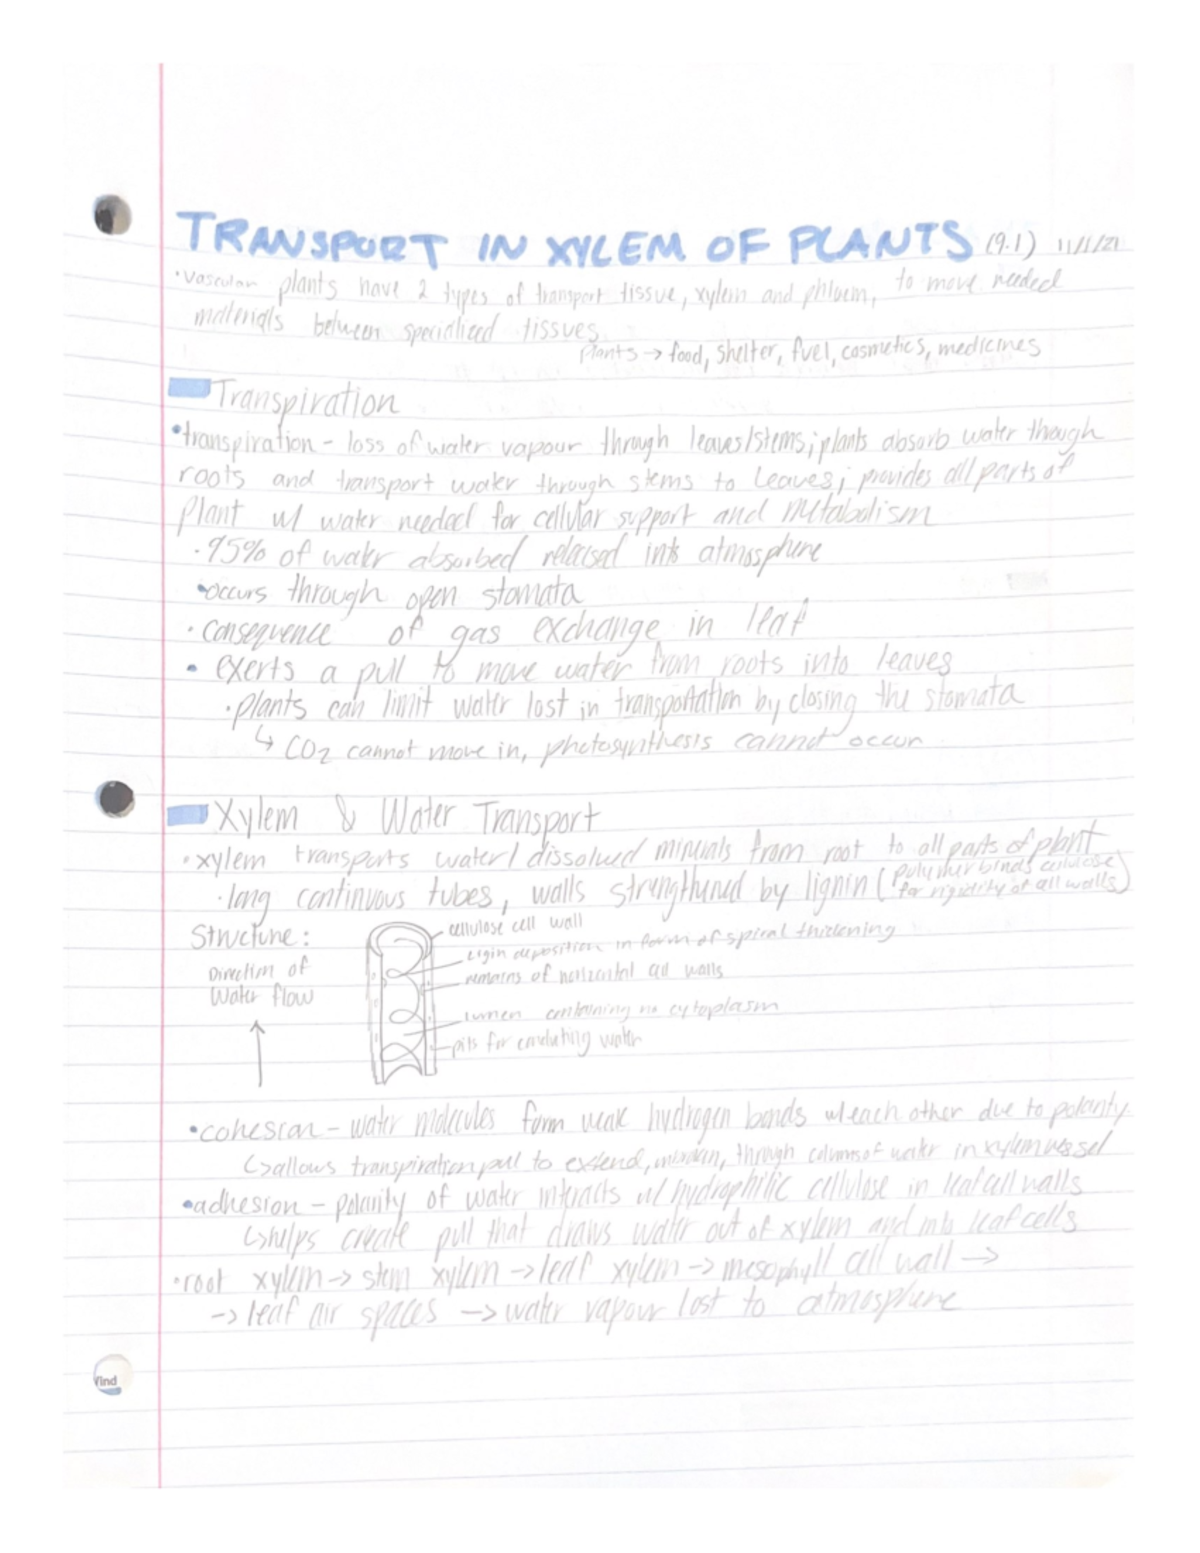 TRANSPORT IN XYLEM OF PLANTS (9.1) 11/1/21
• vascular plants have 2 types of transport tissue, xylem and phloem, to move needed
materials between specialized tissues
Plants → food, shelter, fuel, cosmetics, medicines
Transpiration
• transpiration - loss of water vapour through leaves/stems; plants absorb water through
roots and transport water through stems to leaves; provides all parts of
plant w/ water needed for cellular support and metabolism
• 95% of water absorbed released into atmosphere
• occurs through open stomata
• consequence of gas exchange in leaf
• exerts a pull to move water from roots into leaves
• plants can limit water lost in transportation by closing the stomata
↳ CO2 cannot move in, photosynthesis cannot occur
Xylem & Water Transport
• xylem transports water/dissolved minerals from root to all parts of plant
• long continuous tubes, walls strengthened by lignin (polymer binds cellulose
for rigidity of cell walls)
Structure:
Direction of
Water flow
cellulose cell wall
lignin deposition in form of spiral thickening
remains of horizontal cell walls
lumen containing no cytoplasm
pits for conducting water
• cohesion - water molecules form weak hydrogen bonds w/ each other due to polarity
↳ allows transpiration pull to extend, through column of water in xylem vessel
• adhesion - polarity of water interacts w/ hydrophilic cellulose in leaf cell walls
↳ helps create pull that draws water out of xylem and into leaf cells
• root xylem → stem xylem → leaf xylem → mesophyll cell wall →
→ leaf air spaces → water vapour lost to atmosphere
find